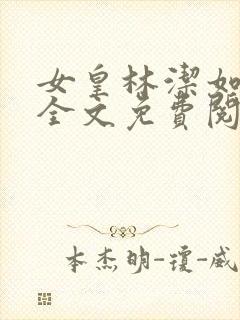 女皇林潔如
全文免費閱
本杰明-瓊-威